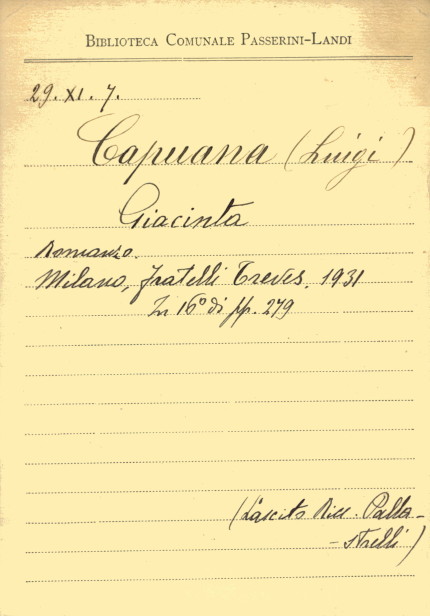 BIBLIOTECA COMUNALE PASSERINI-LANDI
29. XI. 7.
Capuana (Luigi)
Giacinta
Romanzo.
Milano, Fratelli Treves. 1931
In 16° di pp. 279
(Lascito Bibl. Palla-
-strelli)